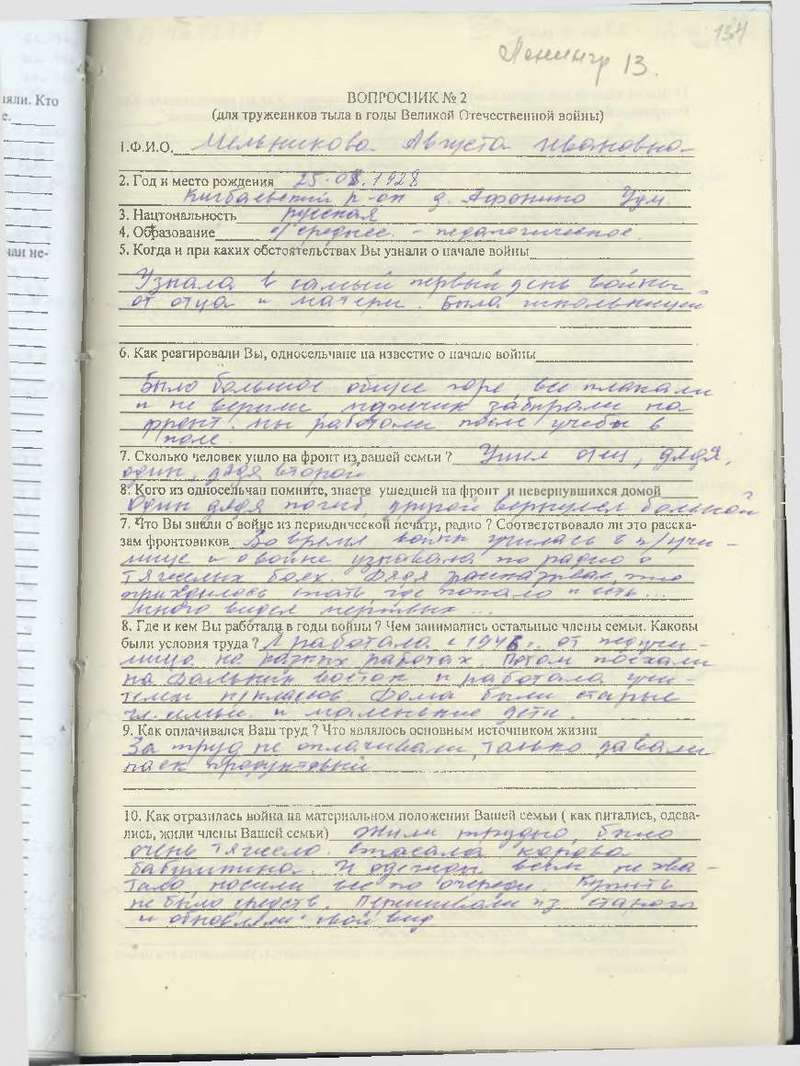 134
Ленингр 13.
няли. Кто
е.
ВОПРОСНИК № 2
(для тружеников тыла в годы Великой Отечественной войны)
1.Ф.И.О. Мельникова Августа Ивановна
2. Год и место рождения 25.08.1928
Кигбаевский р-он д. Афонино Удм
3. Нацтональность русская
4. Образование с/среднее - педагогическое
чан не-
5. Когда и при каких обстоятельствах Вы узнали о начале войны
Узнала в самый первый день войны
от отца и матери. Была школьницей
6. Как реагировали Вы, односельчане на известие о начале войны
Было большое общее горе, все плакали
и не верили, мужчин забирали на
фронт. мы работали после учебы в
поле.
7. Сколько человек ушло на фронт из вашей семьи ? Ушли отец, дядя,
один, дядя второй
8. Кого из односельчан помните, знаете ушедшей на фронт и невернувшихся домой
Один дядя погиб, другой вернулся больной
7. Что Вы знали о войне из периодической печатр, радио ? Соответствовало ли это расска-
зам фронтовиков Во время войны училась в п/учи-
лище и о войне узнавала по радио о
тяжелых боях. Дядя рассказывал, что
приходилось спать где попало и есть...
Много видел мертвых...
8. Где и кем Вы работали в годы войны ? Чем занимались остальные члены семьи. Каковы
были условия труда ? Я работала с 1946 г. от педучи-
лища на разных работах Потом поехали
на Дальний восток и работала учи-
телем н/классов Дома были старые
чл. семьи и маленькие дети.
9. Как оплачивался Ваш труд ? Что являлось основным источником жизни
За труд не оплачивали, только давали
паек продуктовый
10. Как отразилась война на материальном положении Вашей семьи ( как питались, одева-
лись, жили члены Вашей семьи) Жили трудно, было
очень тяжело. Спасала корова
бабушкина. И одежды всем не хва-
тало, носили все по очереди. Купить
не было средств. Перешивали из старого
и обновляли свой вид